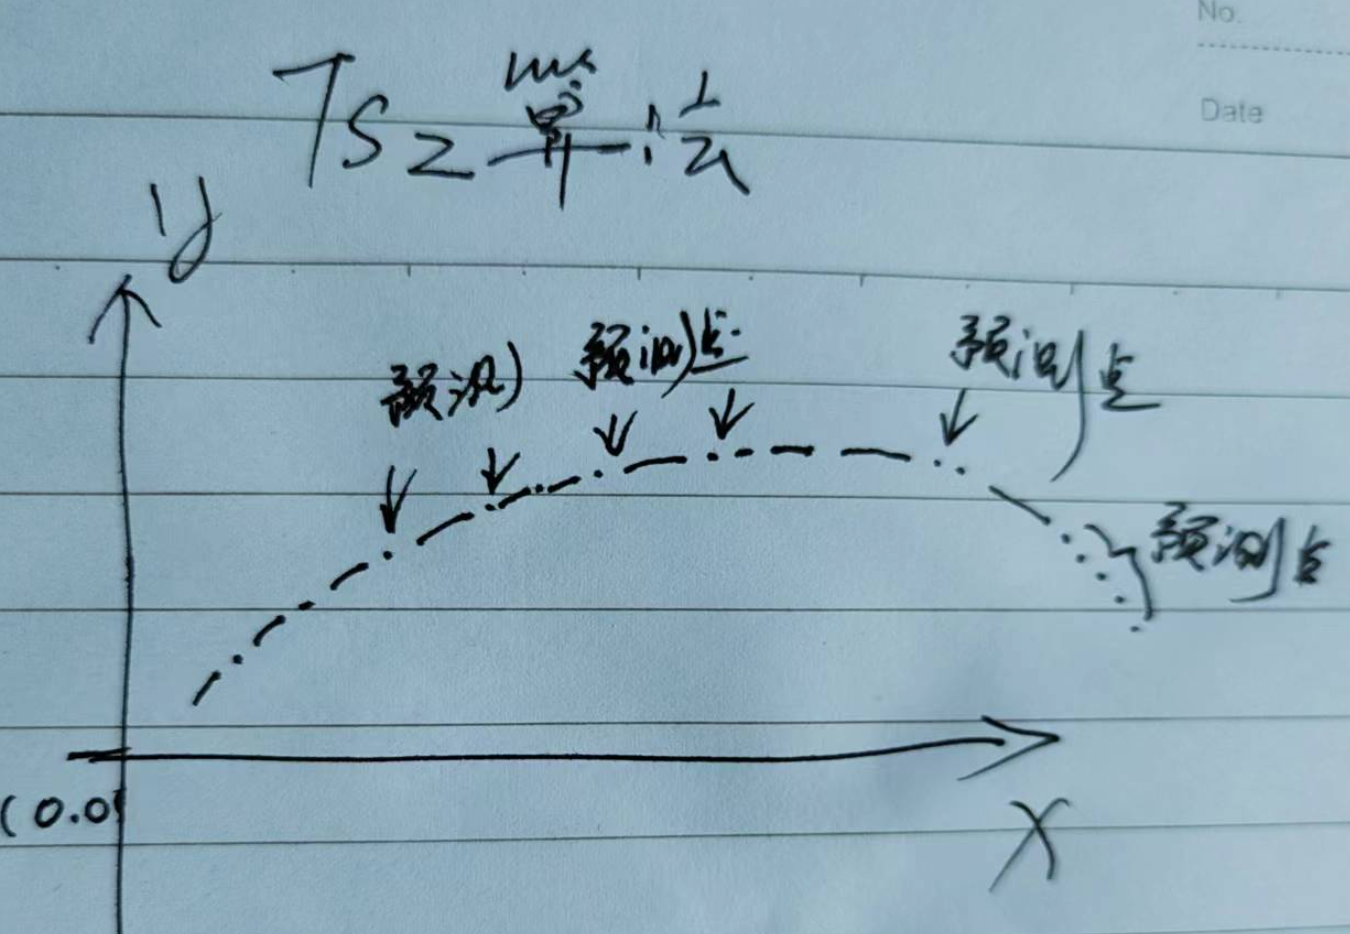 No.
Date
TS2算法
y
预测
预测点
预测点
预测点
(0.0)
X